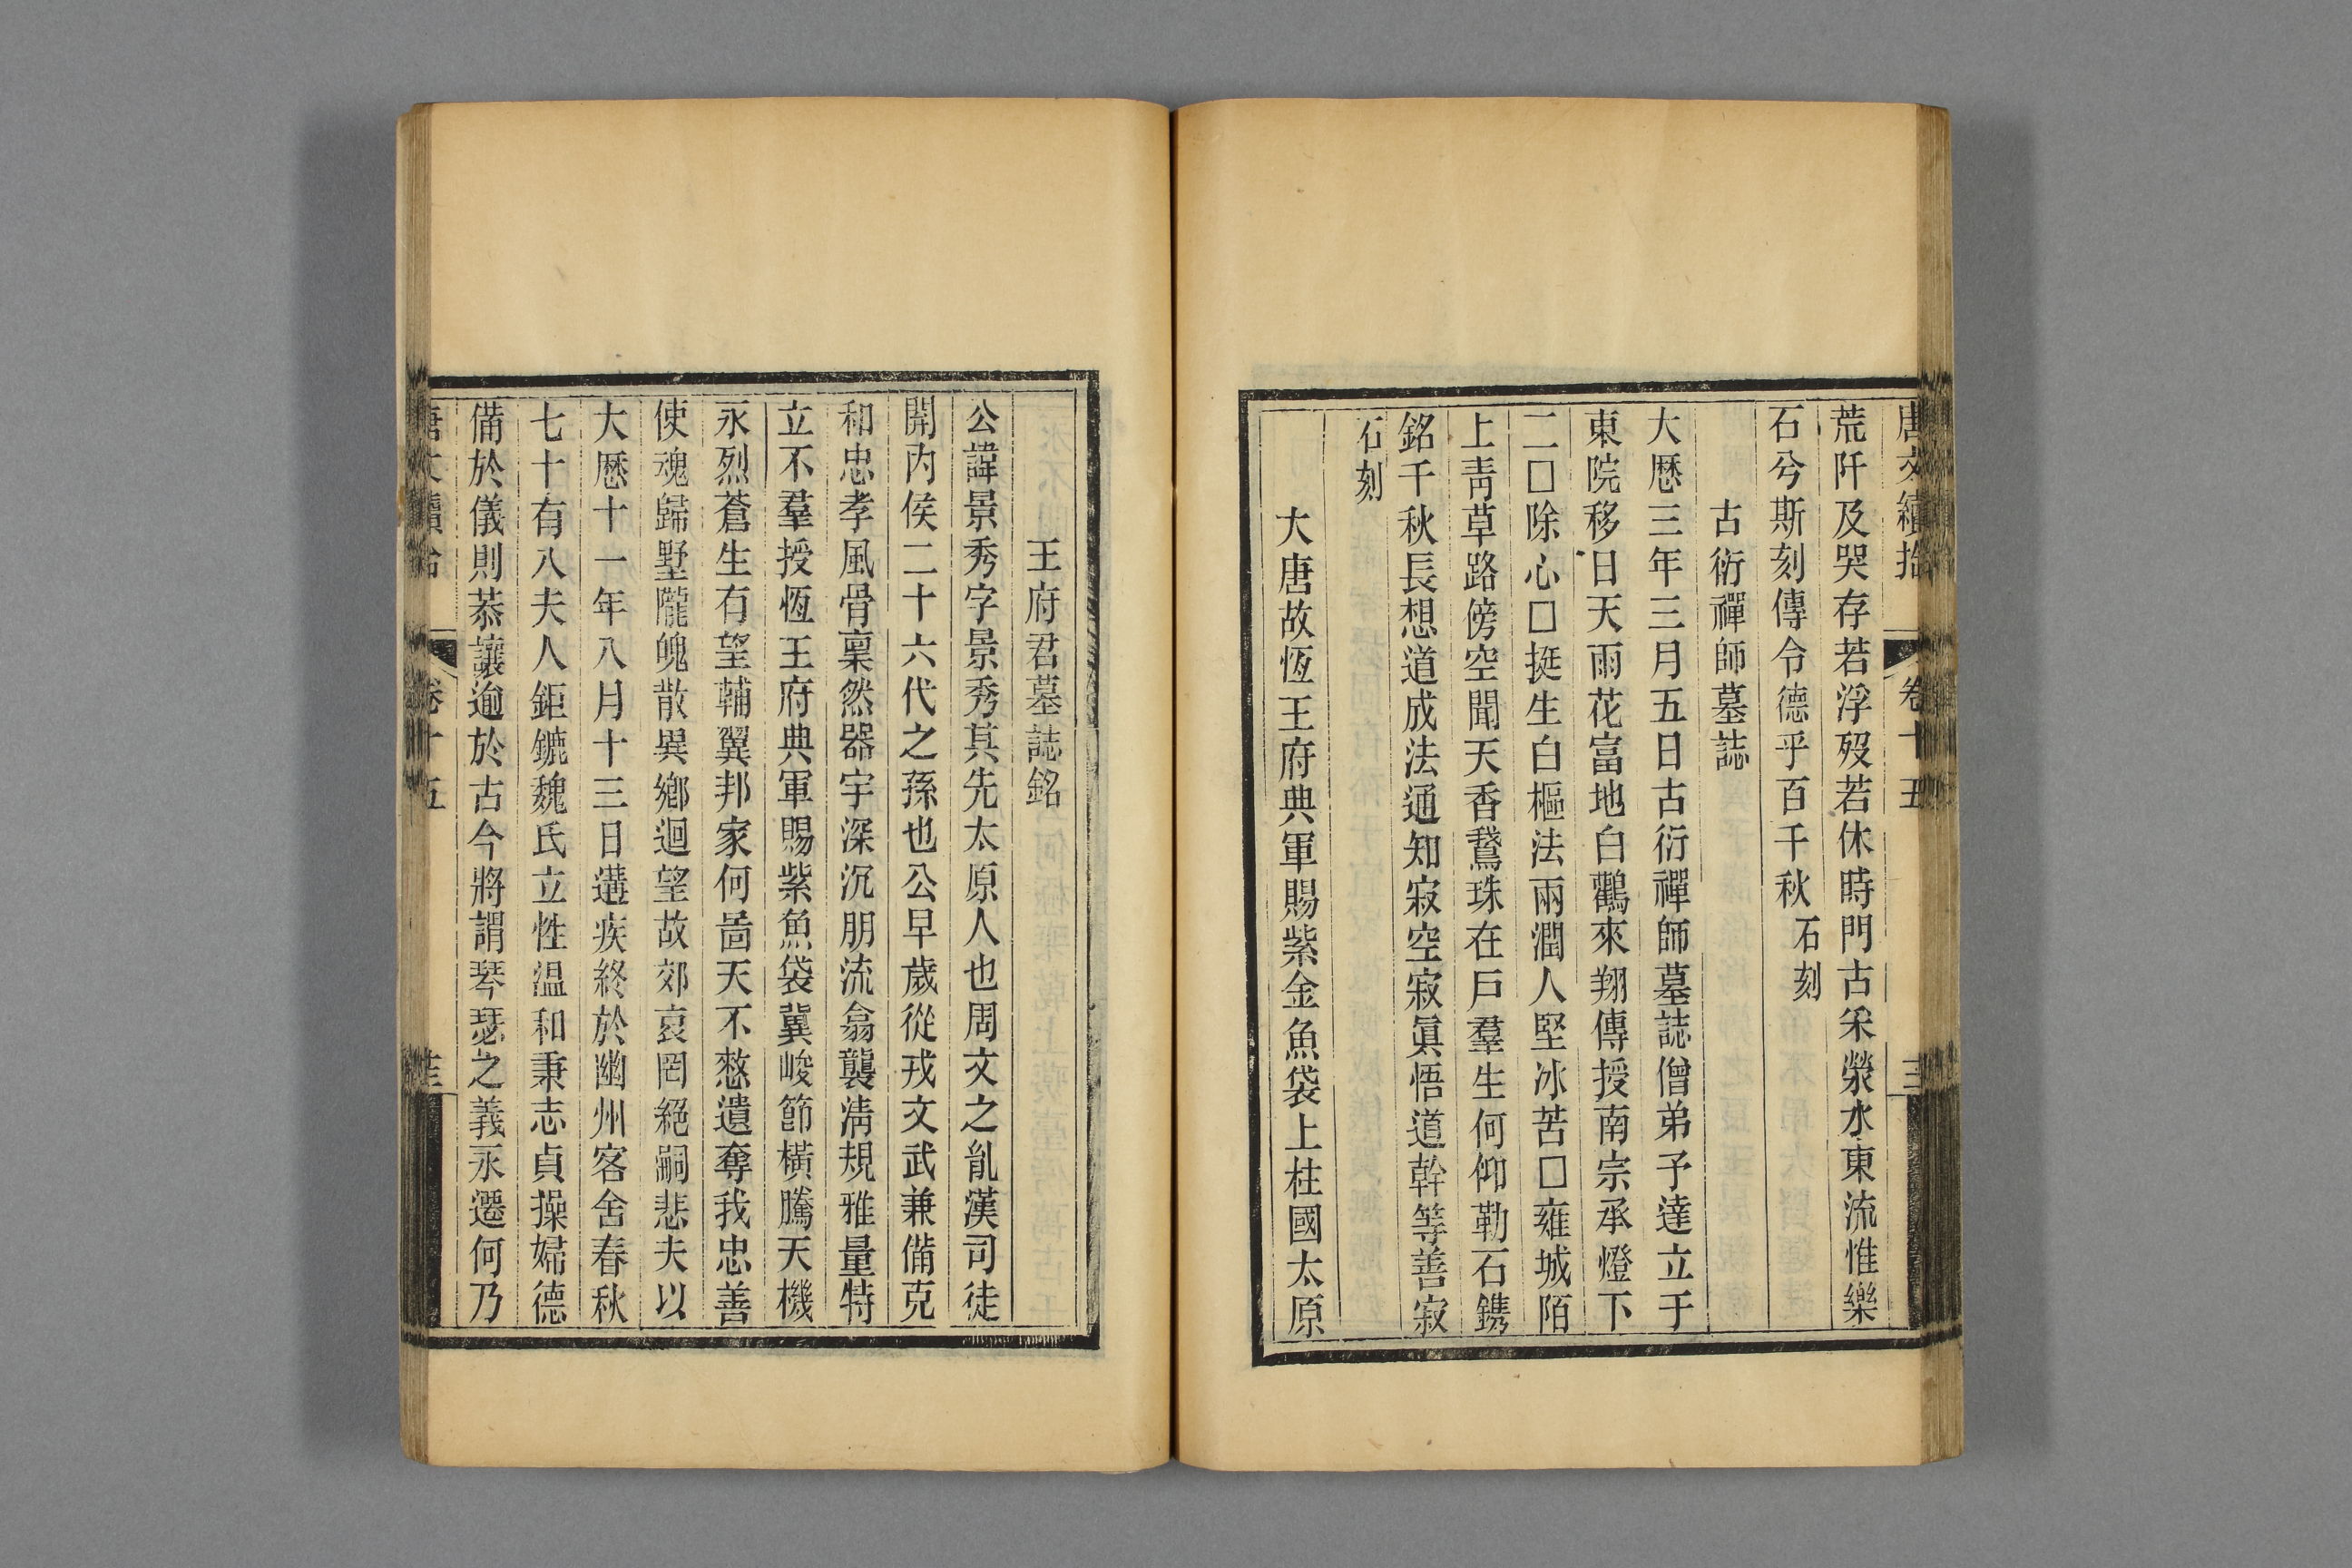 荒阡及哭存若浮歿若休時門古釆滎水東流惟樂
石兮斯刻傳令德乎百千秋 石刻
古衍禪師墓誌
大曆三年三月五日古衍禪師墓誌僧弟予達立于
東院移日天雨花富地白鸛來翔傳授南宗承燈下
二□除心□挺生白樞法雨潤人堅冰苦□雍城陌
上靑草路傍空聞天香鵞珠在戶羣生何仰勒石鐫
銘千秋長想道成法通知寂空寂眞悟道幹等善寂
石刻
大唐故恆王府典軍賜紫金魚袋上柱國太原
王府君墓誌銘
公諱景秀字景秀其先太原人也周文之胤漢司徒
開內侯二十六代之孫也公早歲從戎文武兼備克
和忠孝風骨稟然器宇深沉朋流翕襲淸規雅量特
立不羣授恆王府典軍賜紫魚袋冀峻節橫騰天機
永烈蒼生有望輔翼邦家何啚天不憗遺奪我忠善
使魂歸墅隴魄散異鄕迴望故郊哀罔絕嗣悲夫以
大曆十一年八月十三日遘疾終於幽州客舍春秋
七十有八夫人鉅鏕魏氏立性溫和秉志貞操婦德
備於儀則恭讓逾於古今將謂琴瑟之義永遷何乃
卷十五